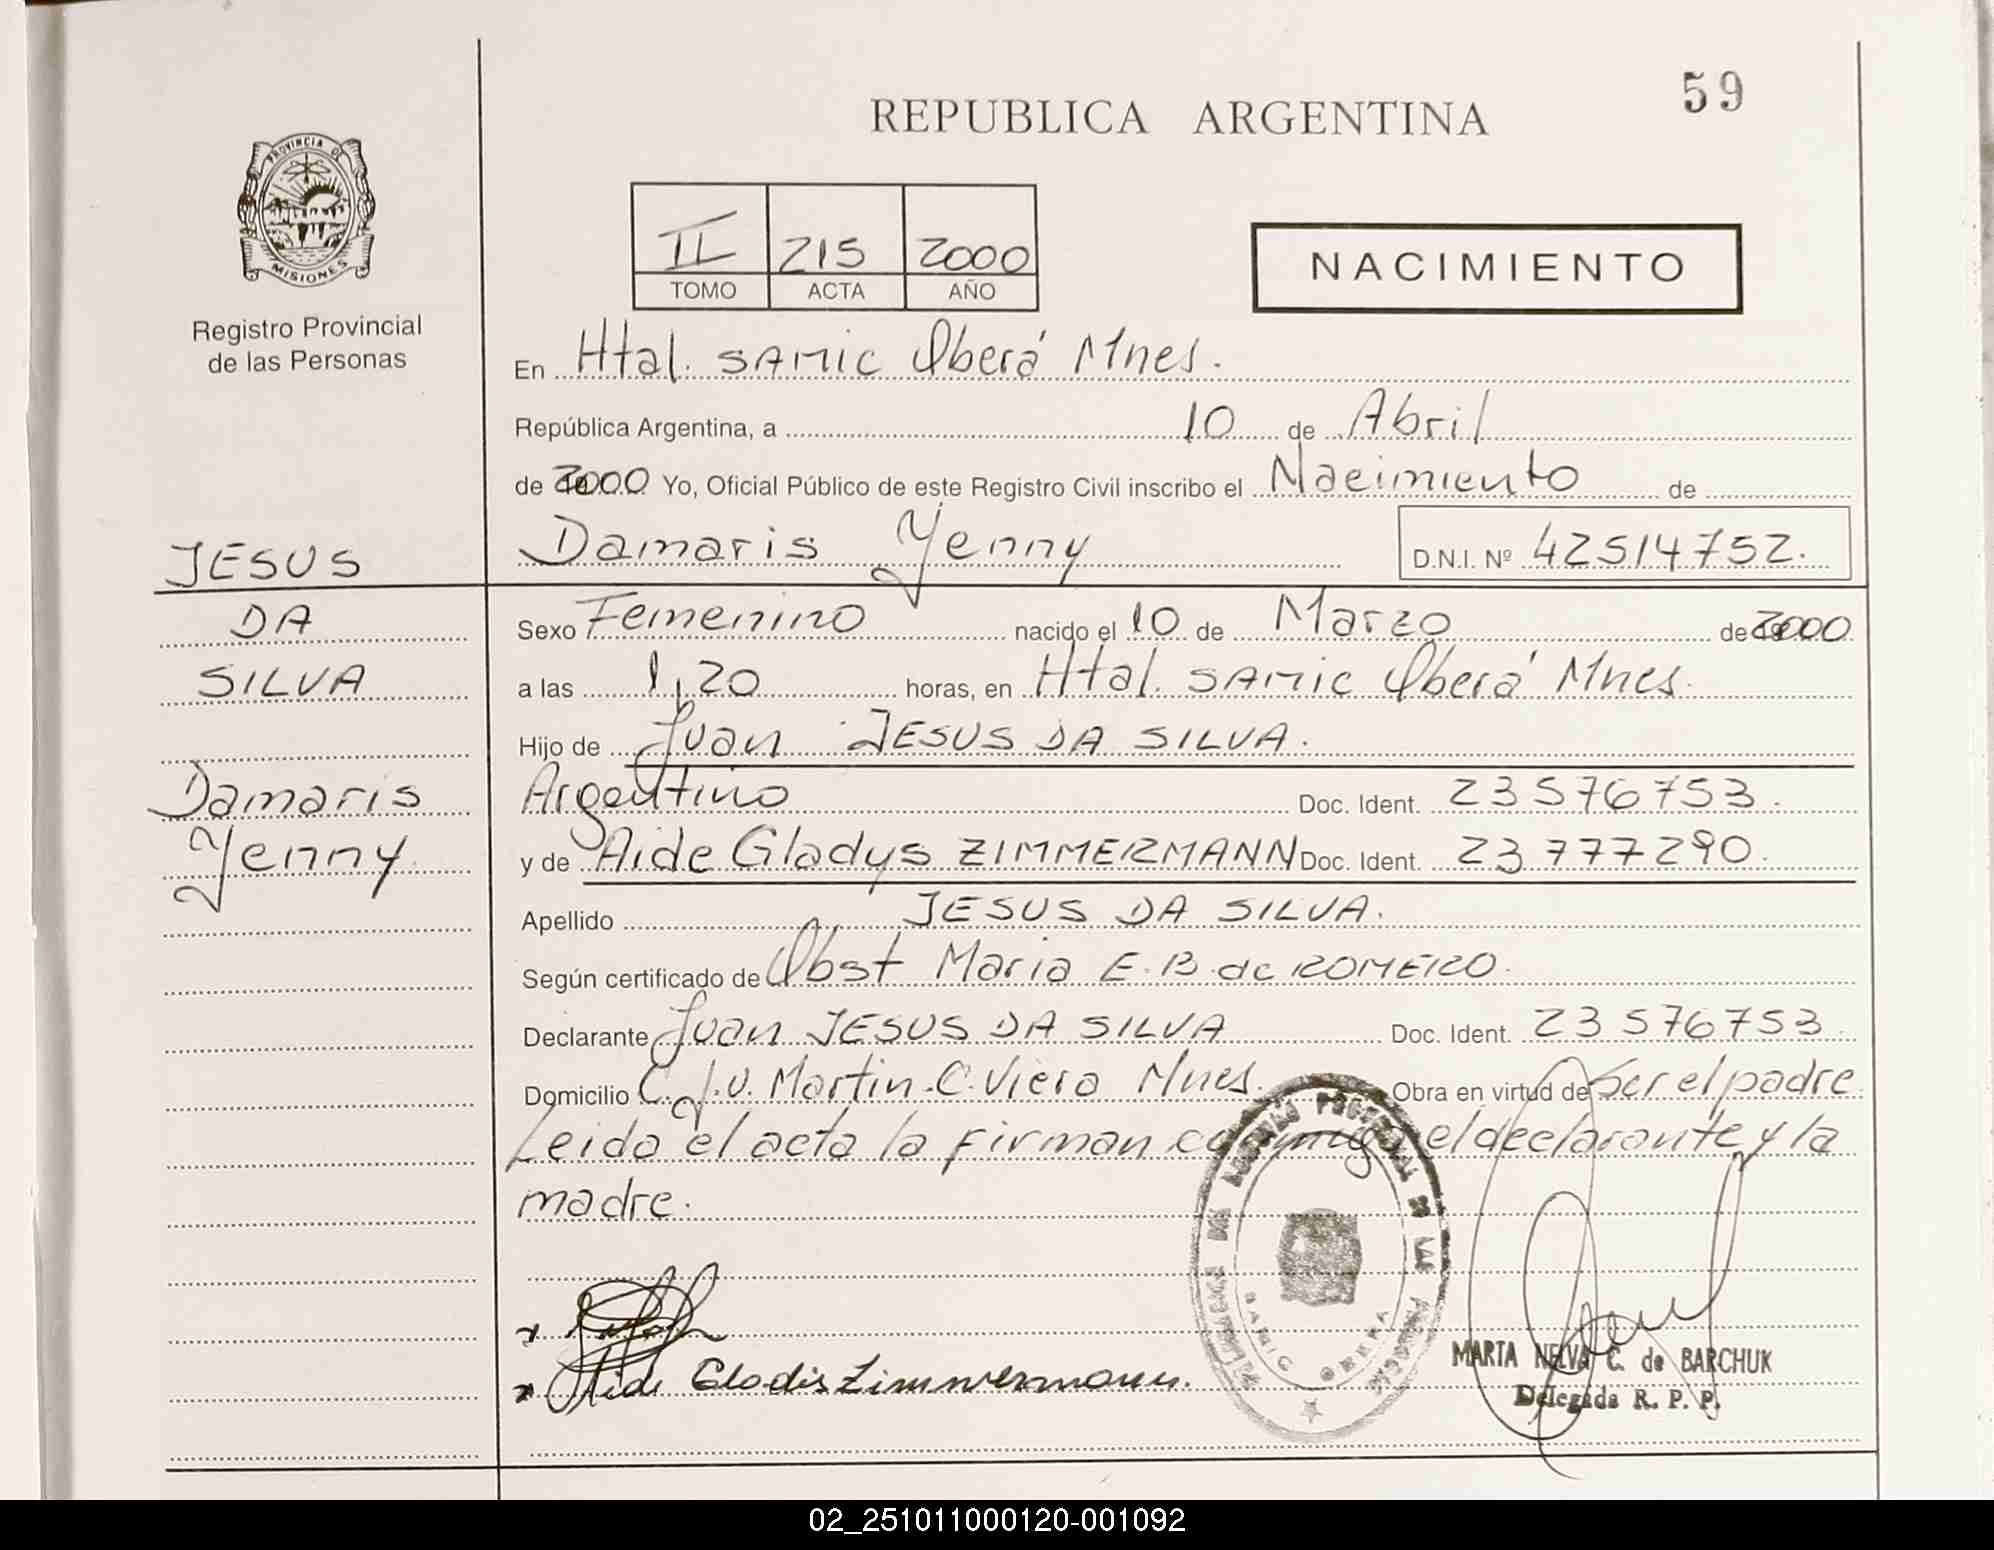 59
REPUBLICA ARGENTINA
PROVINCIA DE
MISIONES
Registro Provincial
de las Personas
II 215 2000
TOMO ACTA AÑO
NACIMIENTO
En Htal. SAMIC Oberá Mnes.
República Argentina, a 10 de Abril
de 2000 Yo, Oficial Público de este Registro Civil inscribo el Nacimiento de
Damaris Yenny D.N.I. Nº 42514752.
JESUS
DA
SILVA
Damaris
Yenny
Sexo Femenino nacido el 10 de Marzo de 2000
a las 1,20 horas, en Htal. SAMIC Oberá Mnes.
Hijo de Juan JESUS DA SILVA.
Argentino Doc. Ident. 23576753.
y de Aide Gladys ZIMMERMANN Doc. Ident. 23777290.
Apellido JESUS DA SILVA.
Según certificado de Obst Maria E.B. de ROMERO.
Declarante Juan JESUS DA SILVA Doc. Ident. 23576753.
Domicilio C.J.V. Martin.C.Viera Mnes. Obra en virtud de ser el padre.
Leida el acta la firman conmigo el declarante y la
madre.
Aide Glodis Zimmermann.
SAMIC OBERA
MARTA NELVA C. de BARCHUK
Delegada R. P. P.
02_251011000120-001092